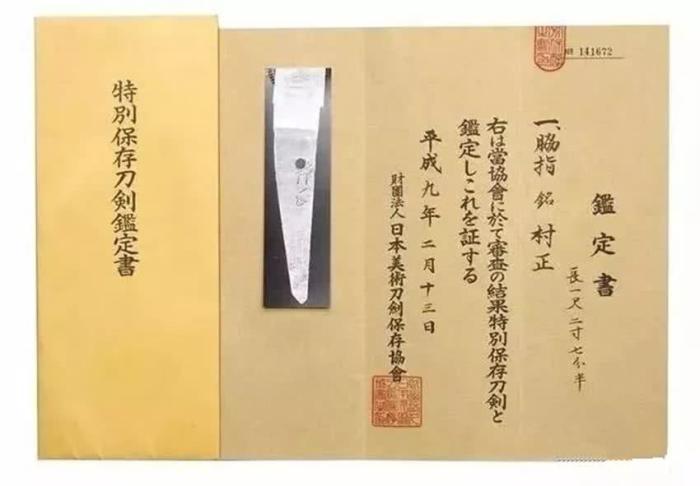 特別保存刀剣鑑定書
141672
鑑定書
一、脇指 銘 村正
長一尺二寸七分半
右は當協會に於て審査の結果特別保存刀剣と
鑑定しこれを証する
平成九年二月十三日
財團法人 日本美術刀劍保存協會